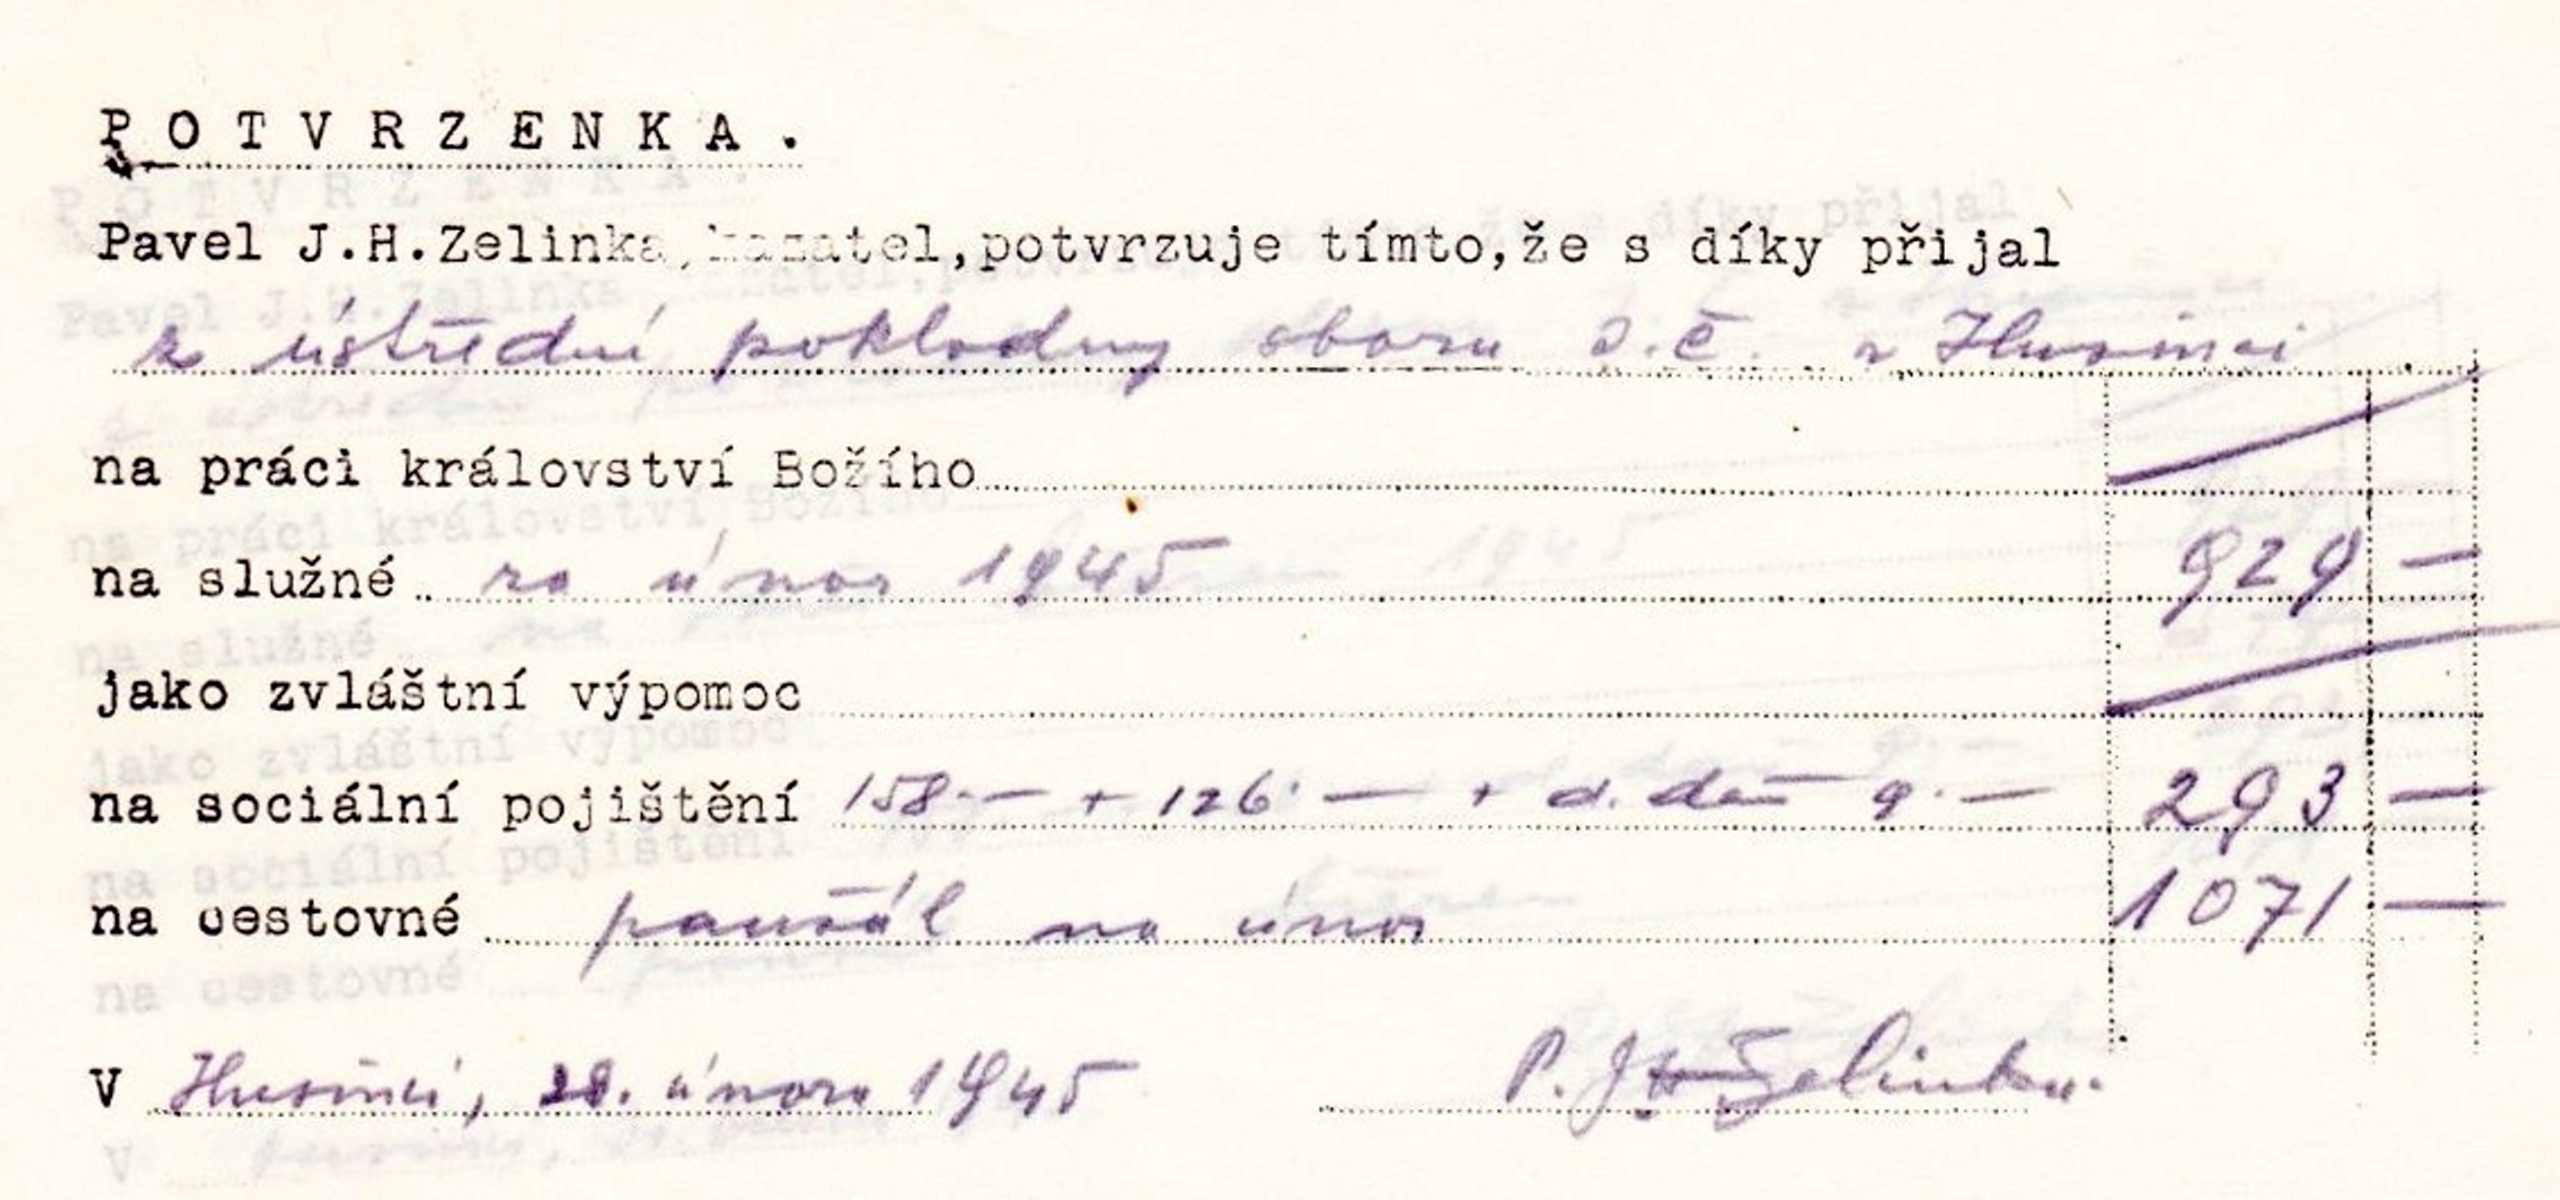 POTVRZENKA.
Pavel J.H.Zelinka, kazatel, potvrzuje tímto, že s díky přijal
z ústřední pokladny sboru J.č. v Husinci
na práci království Božího
na služné za únor 1945 929 —
jako zvláštní výpomoc
na sociální pojištění 158.— + 126.— + d. daň 9.— 293 —
na cestovné paušál na únor 1071 —
V Husinci, 28. února 1945 P. J. H. Zelinka.